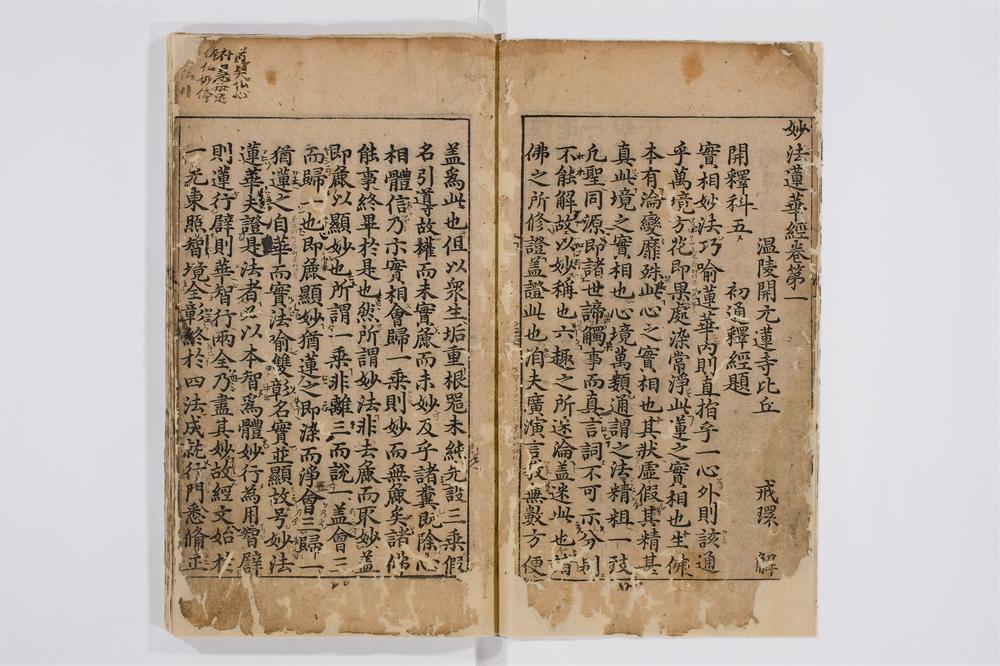 妙法蓮華經卷第一
温陵開元蓮寺比丘 戒環 解
開釋科五 初通釋經題
實相妙法巧喻蓮華內則直指乎一心外則該通
乎萬境方花即果處染常淨此蓮之實相也生佛
本有淪變靡殊此心之實相也其狀虛假其精甚
真此境之實相也心境萬類通謂之法精粗一致
凡聖同源即諸世諦觸事而真言詞不可示分別
不能解故以妙稱也六趣之所迷淪盖迷此也諸
佛之所修證盖證此也洎夫廣演言教無數方便
盖爲此也但以衆生垢重根器未純先設三乘假
名引導故權而未實麁而未妙及乎諸糞既除心
相體信乃示實相會歸一乘則妙而無麁矣諸佛
能事終畢於是也然所謂妙法非去麁而取妙盖
即麁以顯妙也所謂一乘非離三而說一盖會三
而歸一也即麁顯妙猶蓮之即染而淨會三歸一
猶蓮之自華而實法喻雙彰名實並顯故号妙法
蓮華夫證是法者必以本智爲體妙行為用智譬
則蓮行譬則華智行兩全乃盡其妙故經文始於
一光東照智境全彰終於四法成就行門悉俻正